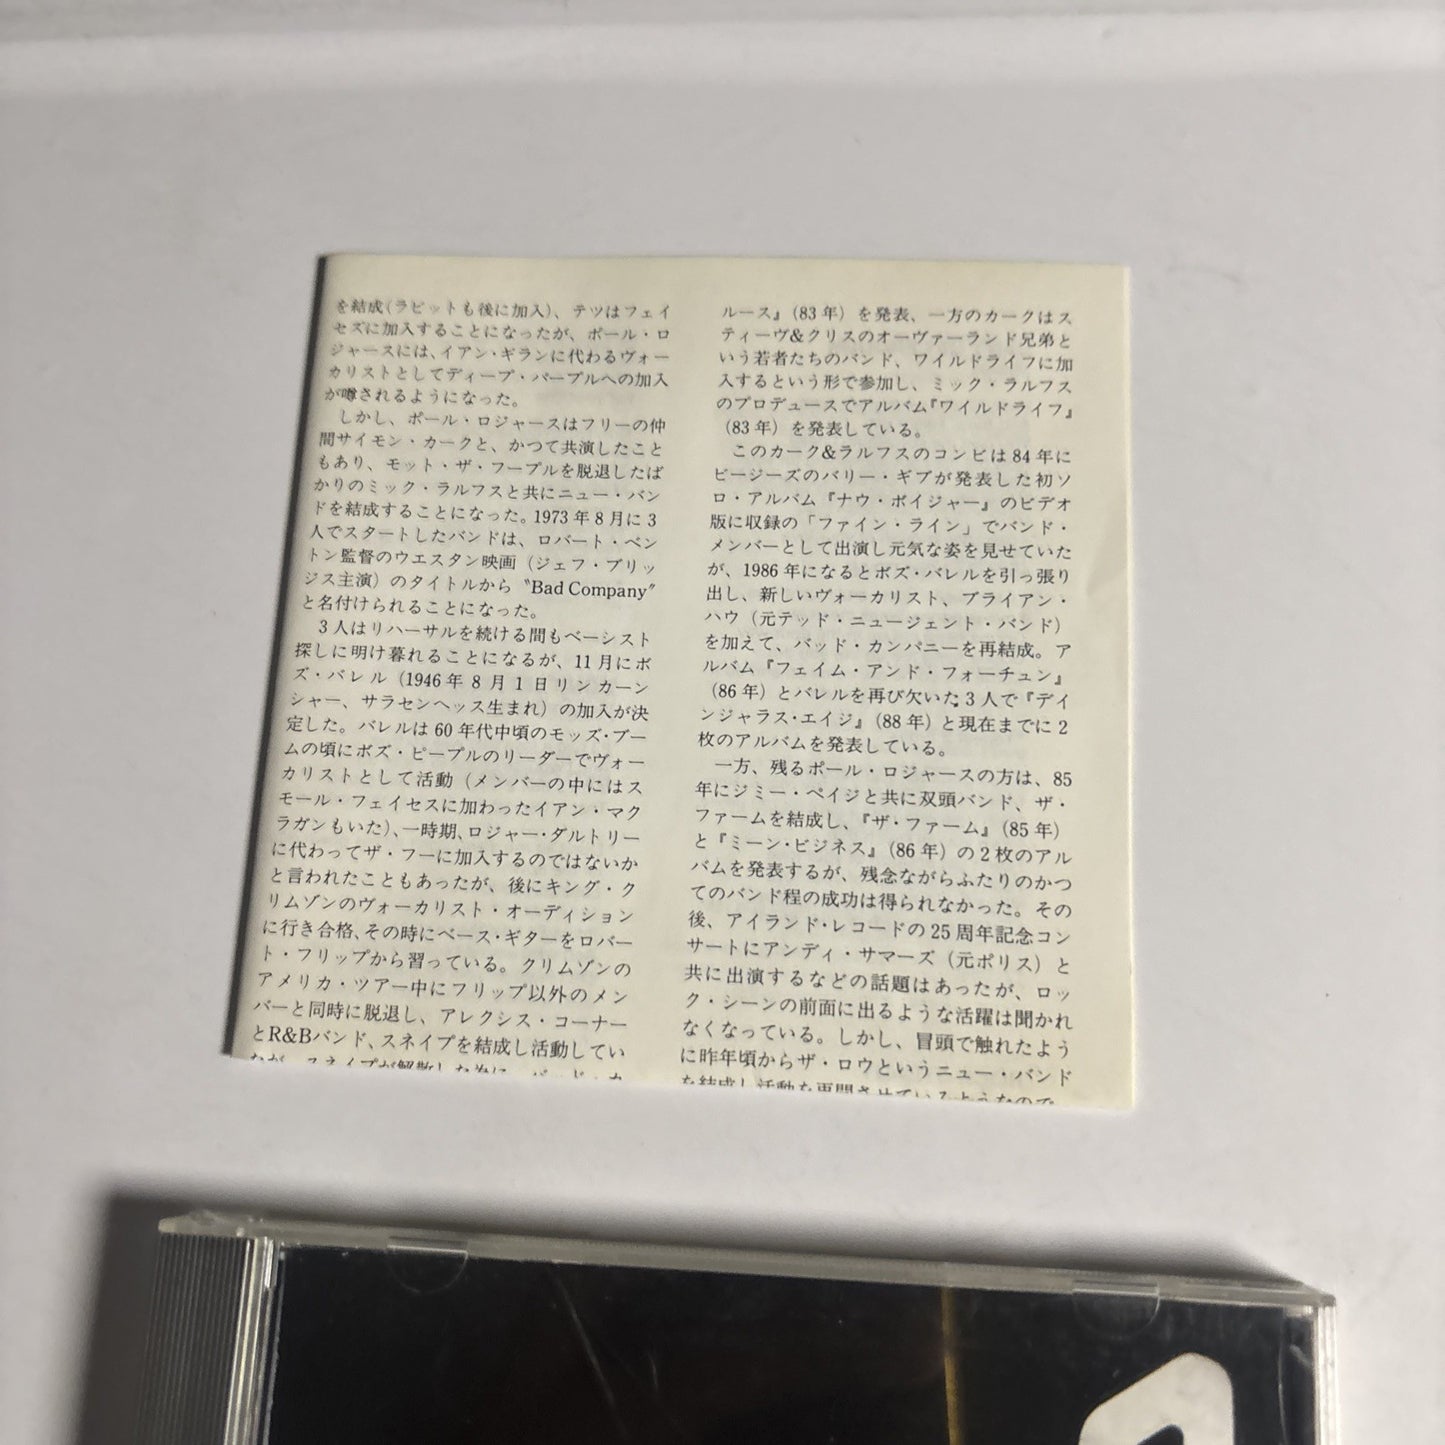 を結成(ラビットも後に加入)、テツはフェイ
セズに加入することになったが、ポール・ロ
ジャースには、イアン・ギランに代わるヴォー
カリストとしてディープ・パープルへの加入
が噂されるようになった。
しかし、ポール・ロジャースはフリーの仲
間サイモン・カークと、かつて共演したこと
もあり、モット・ザ・フープルを脱退したば
かりのミック・ラルフスと共にニュー・バン
ドを結成することになった。1973年8月に3
人でスタートしたバンドは、ロバート・ベン
トン監督のウエスタン映画（ジェフ・ブリッ
ジス主演）のタイトルから〝Bad Company〟
と名付けられることになった。
3人はリハーサルを続ける間もベーシスト
探しに明け暮れることになるが、11月にボ
ズ・バレル（1946年8月1日リンカーン
シャー、サラセンヘッス生まれ）の加入が決
定した。バレルは60年代中頃のモッズ・ブー
ムの頃にボズ・ピープルのリーダーでヴォー
カリストとして活動（メンバーの中にはス
モール・フェイセスに加わったイアン・マク
ラガンもいた）、一時期、ロジャー・ダルトリー
に代わってザ・フーに加入するのではないか
と言われたこともあったが、後にキング・ク
リムゾンのヴォーカリスト・オーディション
に行き合格、その時にベース・ギターをロバー
ト・フリップから習っている。クリムゾンの
アメリカ・ツアー中にフリップ以外のメン
バーと同時に脱退し、アレクシス・コーナー
とR&Bバンド、スネイプを結成し活動してい
たが、スネイプが解散した為に、バッド・カ
ルース』（83年）を発表、一方のカークはス
ティーヴ&クリスのオーヴァーランド兄弟と
いう若者たちのバンド、ワイルドライフに加
入するという形で参加し、ミック・ラルフス
のプロデュースでアルバム『ワイルドライフ』
（83年）を発表している。
このカーク&ラルフスのコンビは84年に
ビージーズのバリー・ギブが発表した初ソ
ロ・アルバム『ナウ・ボイジャー』のビデオ
版に収録の「ファイン・ライン」でバンド・
メンバーとして出演し元気な姿を見せていた
が、1986年になるとボズ・バレルを引っ張り
出し、新しいヴォーカリスト、ブライアン・
ハウ（元テッド・ニュージェント・バンド）
を加えて、バッド・カンパニーを再結成。ア
ルバム『フェイム・アンド・フォーチュン』
（86年）とバレルを再び欠いた3人で『デイ
ンジャラス・エイジ』（88年）と現在までに2
枚のアルバムを発表している。
一方、残るポール・ロジャースの方は、85
年にジミー・ペイジと共に双頭バンド、ザ・
ファームを結成し、『ザ・ファーム』（85年）
と『ミーン・ビジネス』（86年）の2枚のアル
バムを発表するが、残念ながらふたりのかつ
てのバンド程の成功は得られなかった。その
後、アイランド・レコードの25周年記念コン
サートにアンディ・サマーズ（元ポリス）と
共に出演するなどの話題はあったが、ロッ
ク・シーンの前面に出るような活躍は聞かれ
なくなっている。しかし、冒頭で触れたよう
に昨年頃からザ・ロウというニュー・バンド
を結成し活動を再開させているようなので、